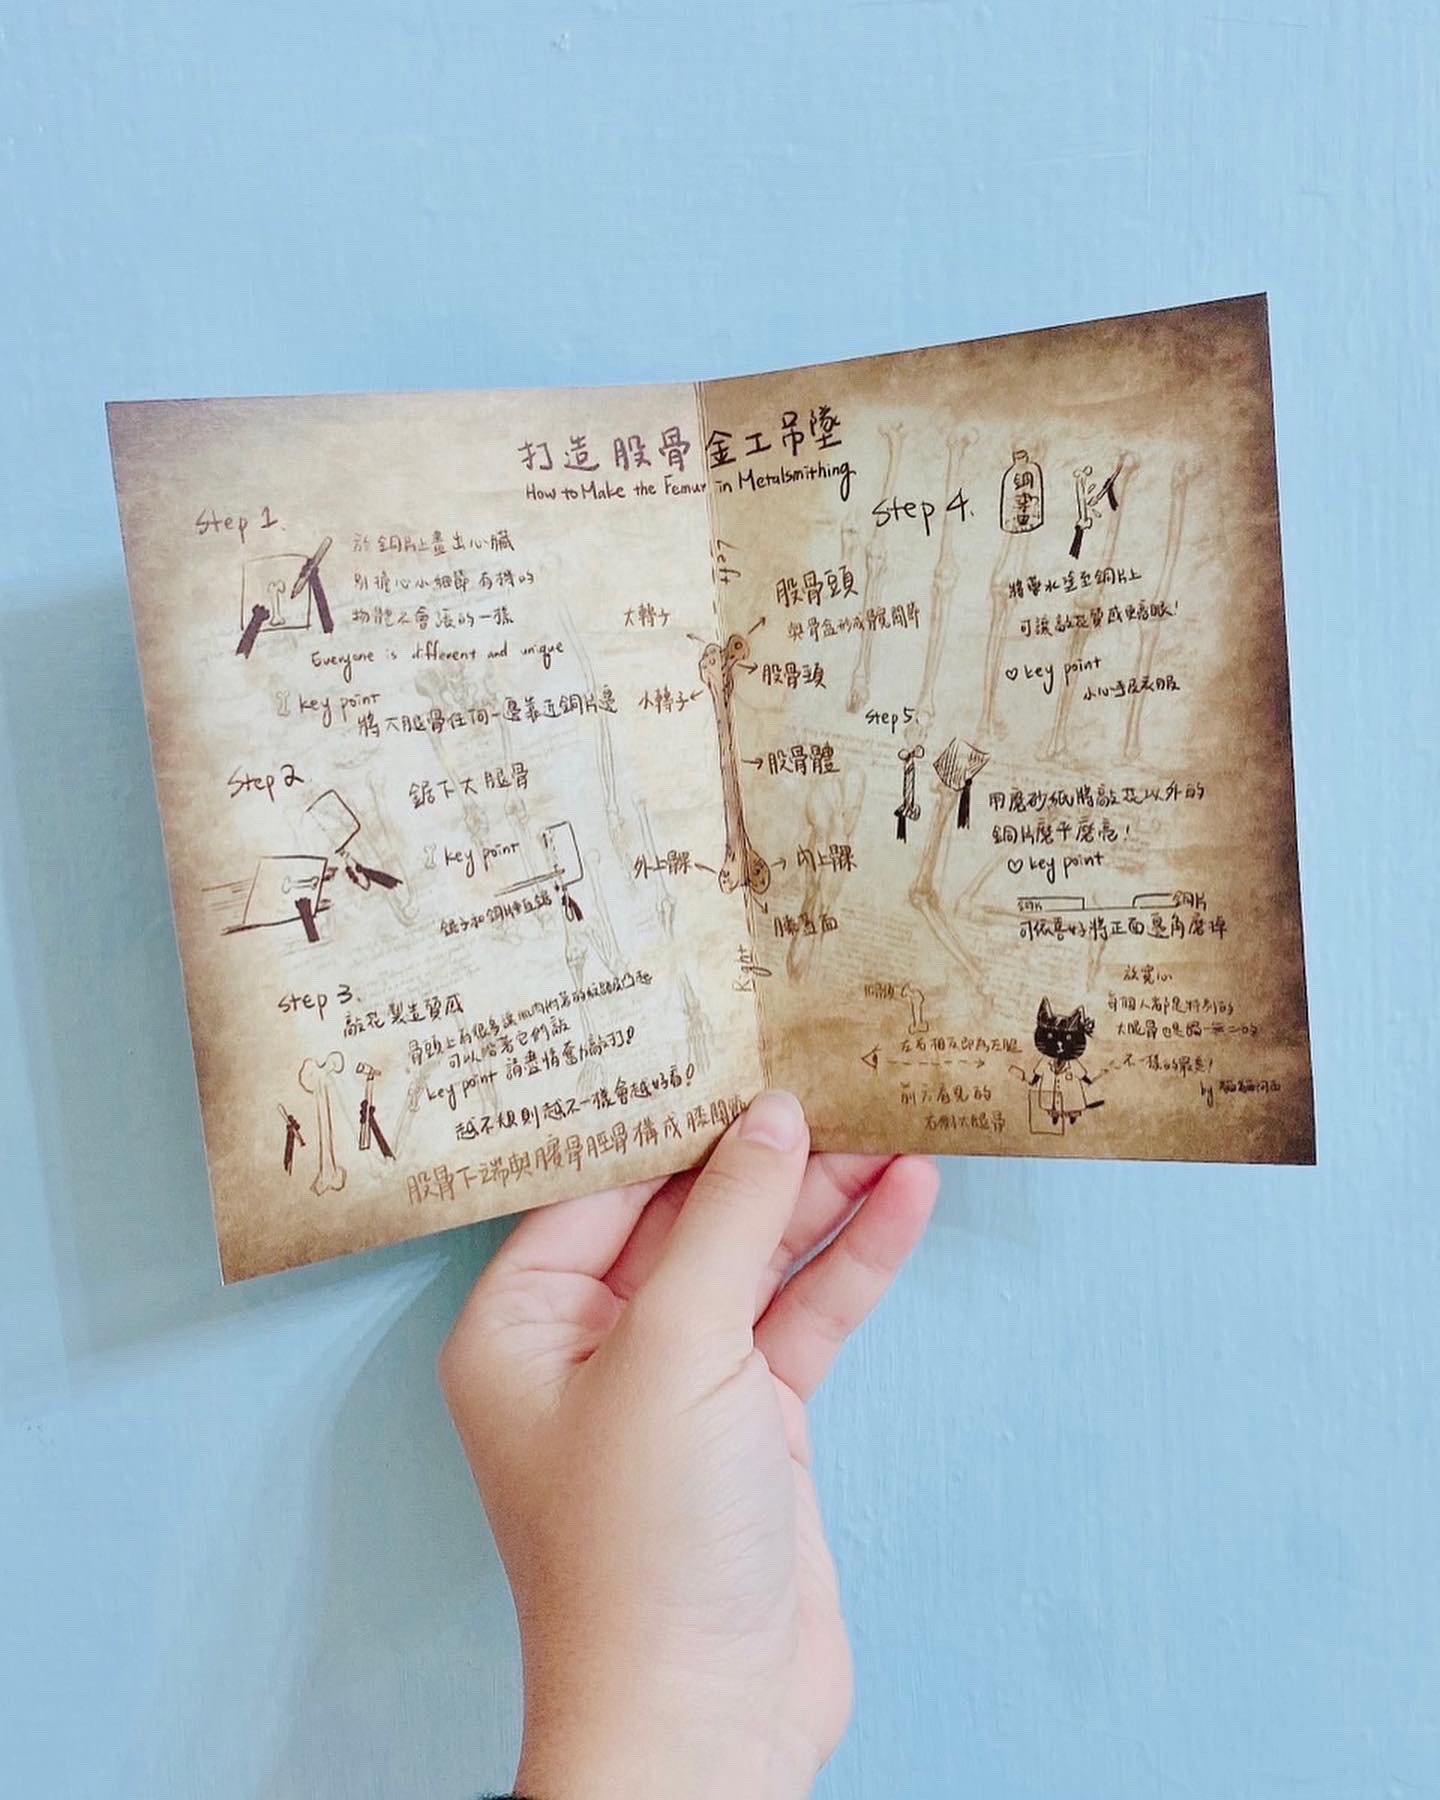 打造股骨金工吊墜
How to Make the Femur in Metalsmithing
Step 1.
於銅片上畫出心臟
別擔心小細節有機的
物體不會長的一樣
Everyone is different and unique
key point
將大腿骨任何一邊靠近銅片邊
Step 2
鋸下大腿骨
key point
鋸子和銅片垂直鋸
Step 3.
敲花製造質感
骨頭上有很多讓肌肉附著的紋路及凸起
可以沿著它們敲
key point 請盡情奮力敲打!
越不規則越不一樣會越好看!
股骨下端與臏骨脛骨構成膝關節
Left
大轉子
股骨頭
與骨盆形成髖關節
股骨頸
小轉子
股骨體
外上髁
內上髁
膝蓋面
Right
Step 4.
銅
將藥水塗至銅片上
可讓敲花質感更搶眼!
key point
小心手及衣服
Step 5.
用磨砂紙將敲花以外的
銅片磨平磨亮!
key point
銅片
銅片
可依喜好將正面邊角磨掉
左右相反即為左腿
前方看見的
右側大腿骨
放寬心
每個人都是特別的
大腿骨也是獨一無二的
不一樣的最美!
by